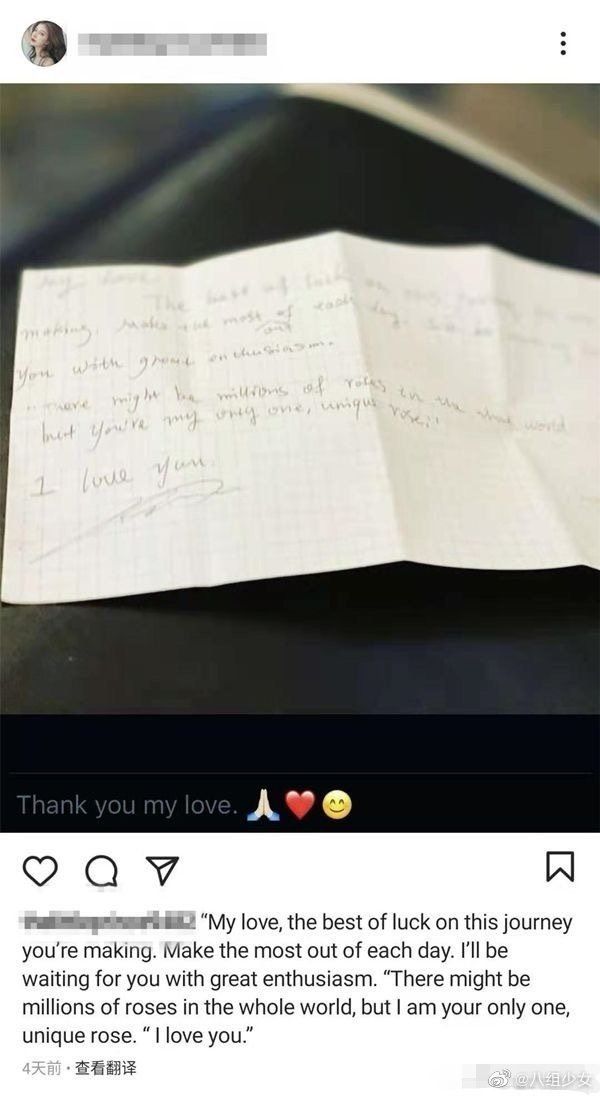 My love
The best of luck on
making. Make the most of each day.
out
you with great enthusiasm.
"There might be millions of roses in the whole world
but you're my only one, unique rose."
I love you.
Thank you my love. 🙏🏻❤️😊
“My love, the best of luck on this journey
you’re making. Make the most out of each day. I’ll be
waiting for you with great enthusiasm. “There might be
millions of roses in the whole world, but I am your only one,
unique rose. “ I love you.”
4天前 · 查看翻译
@八组少女